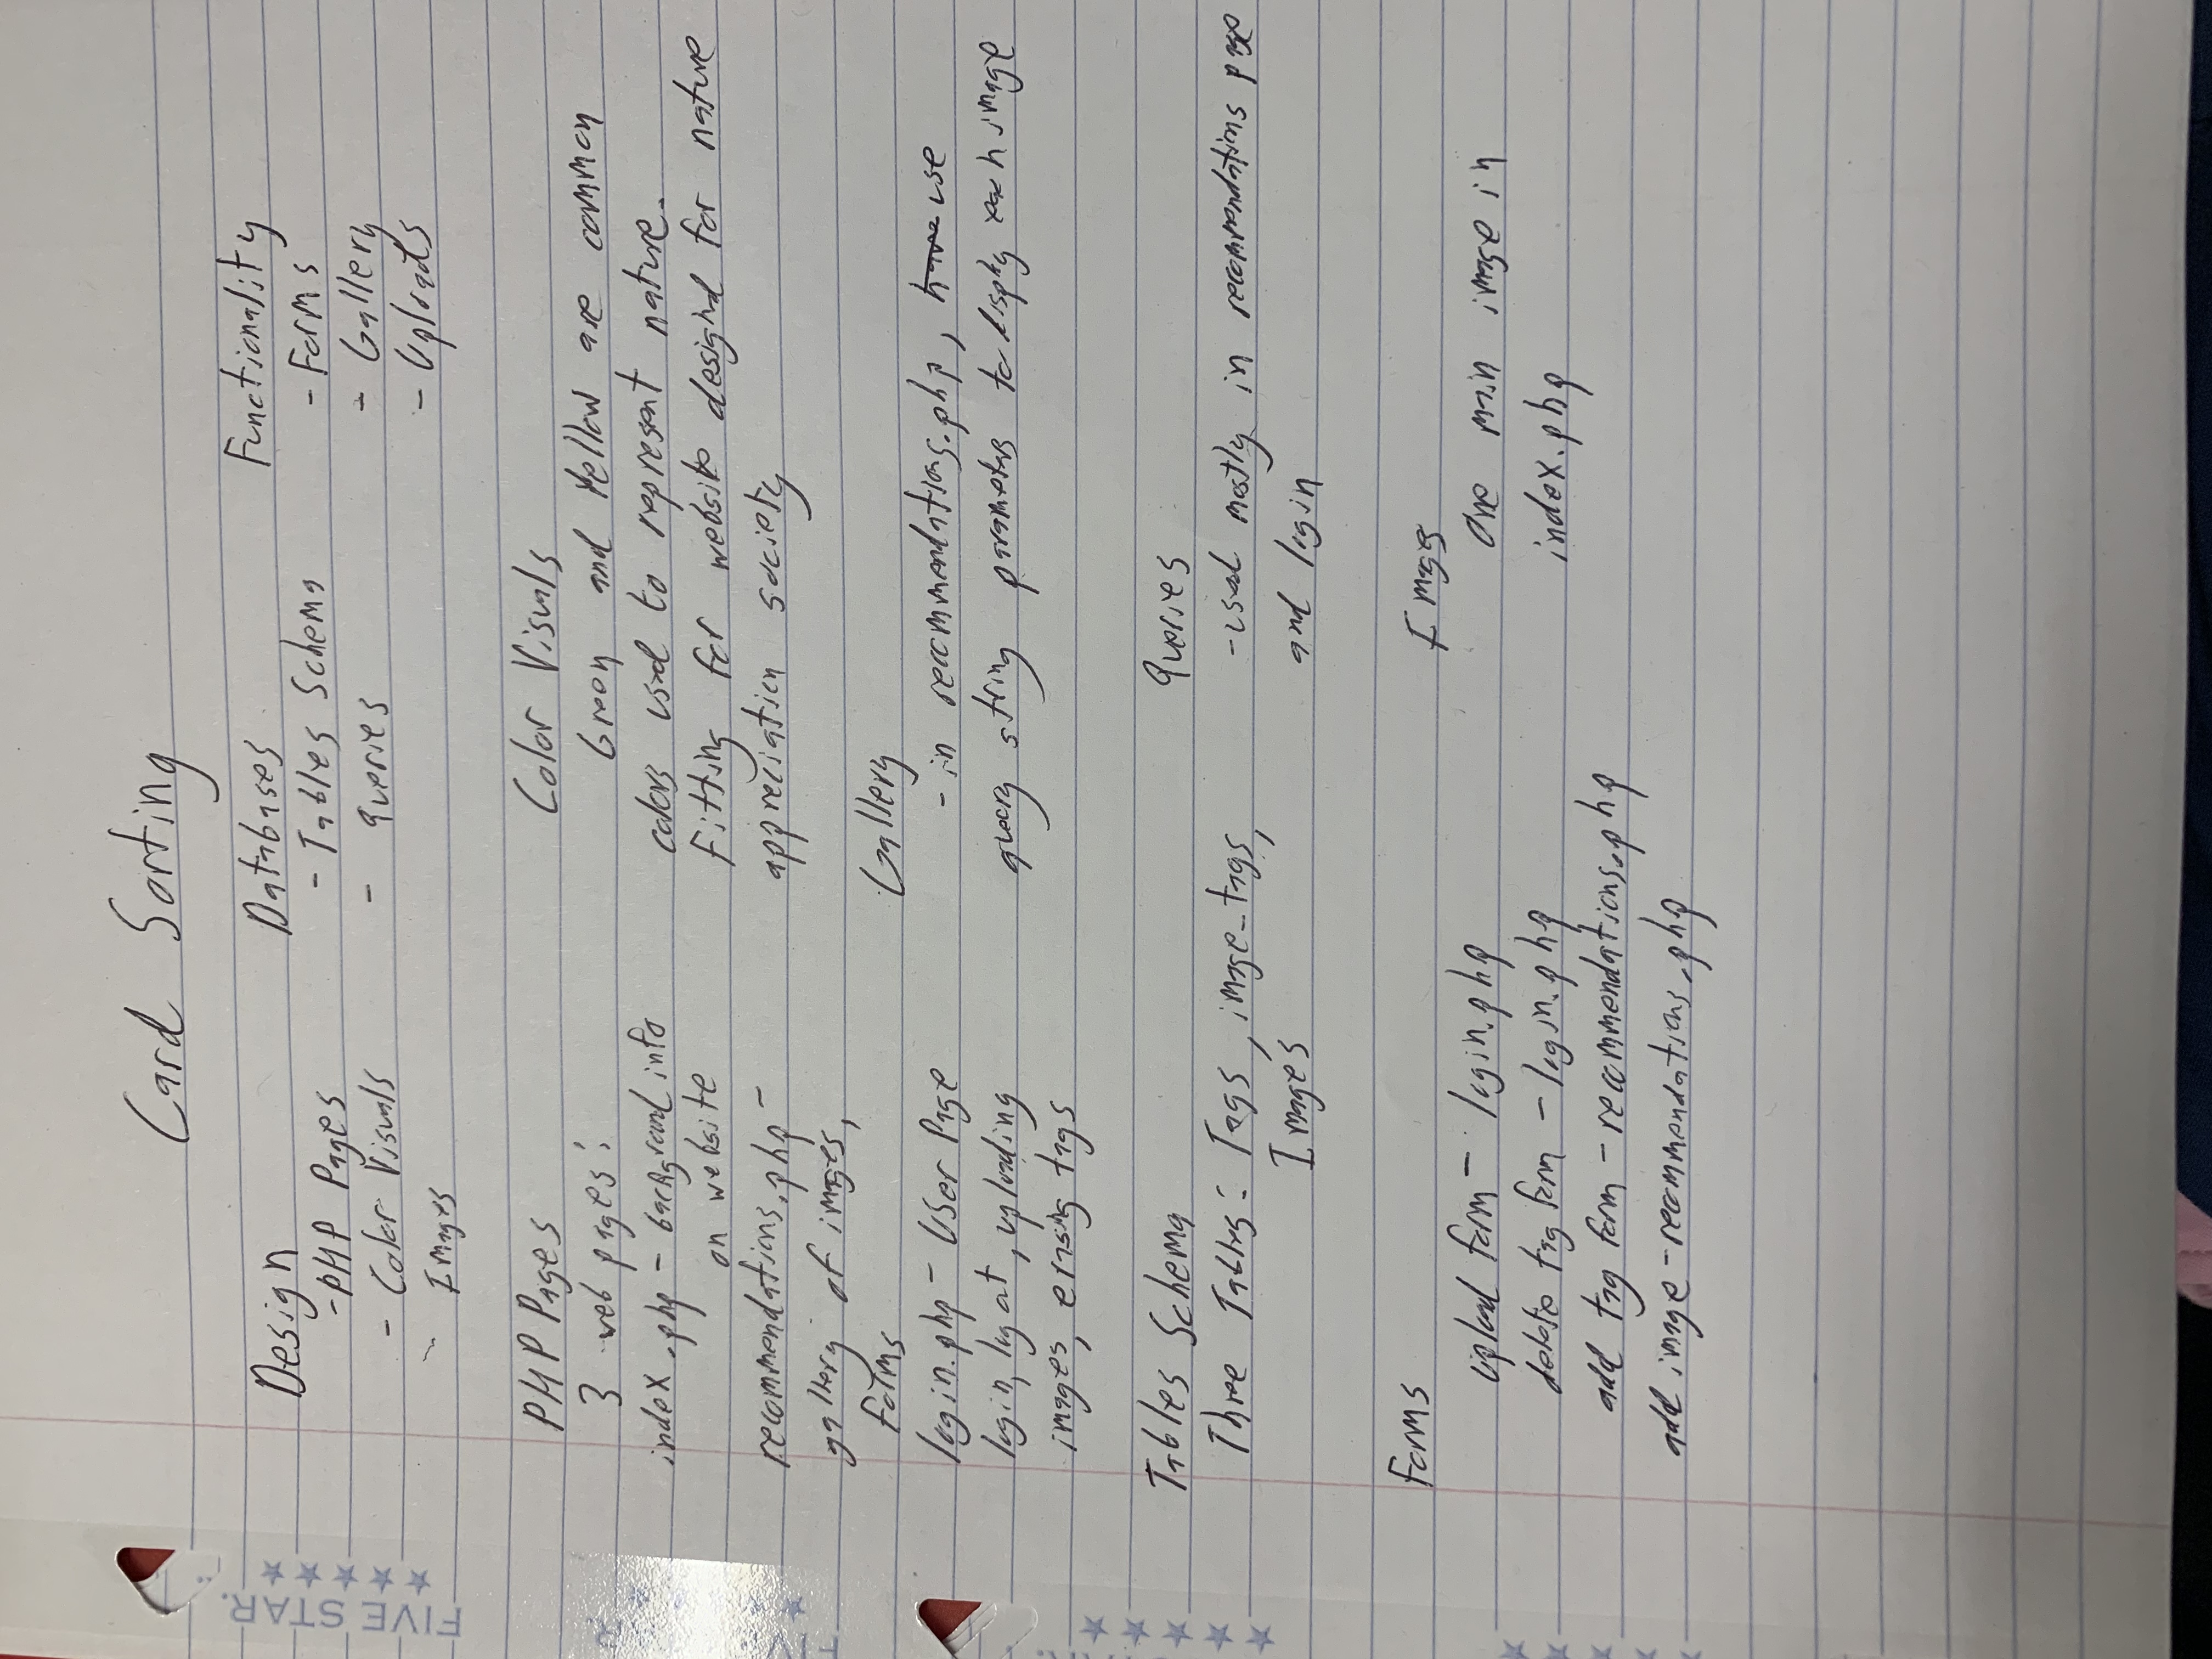 Card Sorting
Design
-PHP Pages
- Color Visuals
- Images
Databases
- Tables Schema
- Queries
Functionality
- Forms
- Gallery
- Uploads
PHP Pages
3 web pages:
index.php - background info
on website
recommendations.php -
gallery of images,
forms
login.php - User Page
login, log out, uploading
images, erasing tags
Color Visuals
Green and Yellow are common
colors used to represent nature.
Fitting for website designed for nature
appreciation society
Gallery
- in recommendations.php, have use
query string parameters to display each image
Tables Schema
Three Tables: Tags, image_tags,
Images
Queries
- used mostly in recommendations page
and login
Forms
upload form - login.php
delete tag form - login.php
add tag form - recommendations.php
add image - recommendations.php
Images
One main image in
index.php
FIVE STAR.